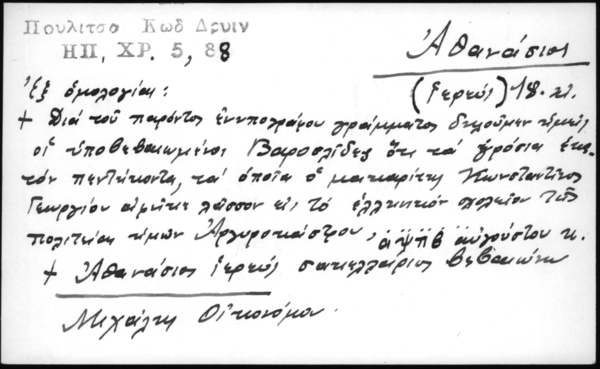 Πουλιτσα Κωδ Δρυιν
ΗΠ. ΧΡ. 5, 88
Ἀθανάσιος
(ἱερεύς) 18. αἰ.
Ἐξ ὁμολογίας:
+ Διά τοῦ παρόντος ἐνυπογράφου γράμματος δηλοῦμεν ἡμεῖς
οἱ ὑποβεβαιωμένοι Βαροσλίδες ὅτι τά γρόσια ἑκα-
τόν πεντήκοντα, τά ὁποῖα ὁ μακαρίτης Κωνσταντῖνος
Γεωργίου εἰς τό ἑλληνικόν σχολεῖον τῆς
πολιτείας ἡμῶν Ἀργυροκάστρου, ἀψπβ αὐγούστου κ.
+ Ἀθανάσιος ἱερεύς σακελλάριος βεβαιώνω
Μιχάλης Οἰκονόμου.